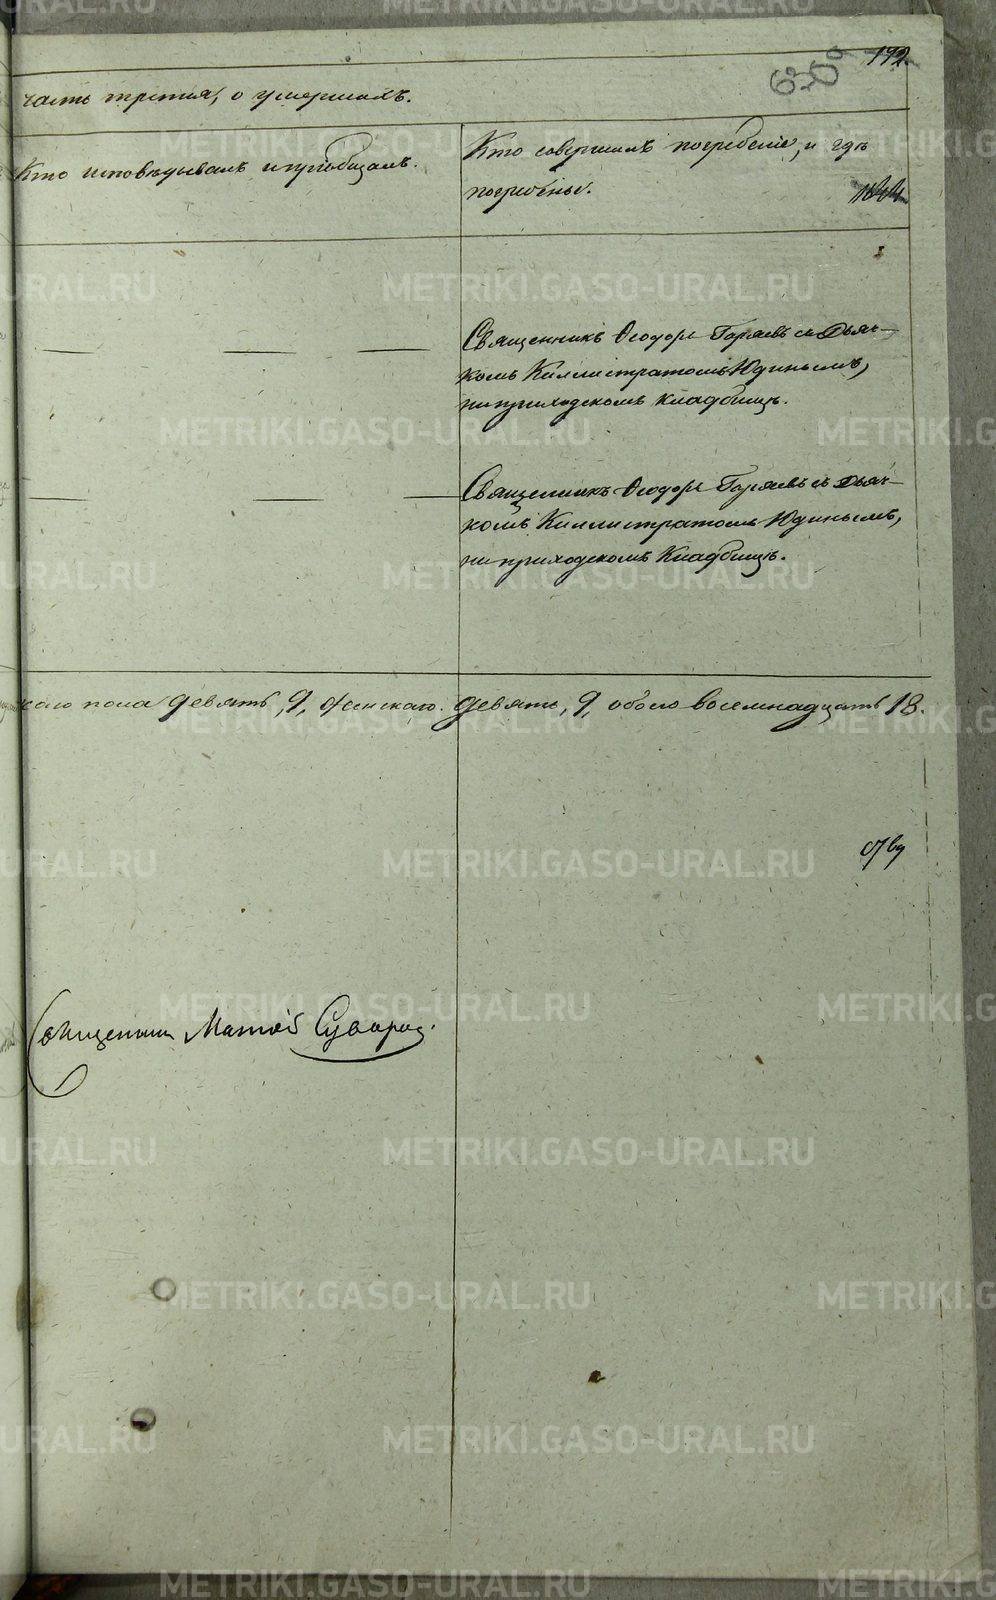 192
630
часть третья, о умершихъ.
Кто исповѣдывалъ и пріобщалъ.
Кто совершалъ погребеніе, и гдѣ
погребены.
Священникъ Ѳеодоръ Горяевъ съ Дьяч-
комъ Каллистратомъ Юдинымъ,
на приходскомъ кладбищѣ.
Священникъ Ѳеодоръ Горяевъ съ Дьяч-
комъ Каллистратомъ Юдинымъ,
на приходскомъ Кладбищѣ.
скаго пола девять, 9, женскаго девять, 9, обоего восемнадцать 18.
Священникъ Матѳей Суворов
METRIKI.GASO-URAL.RU